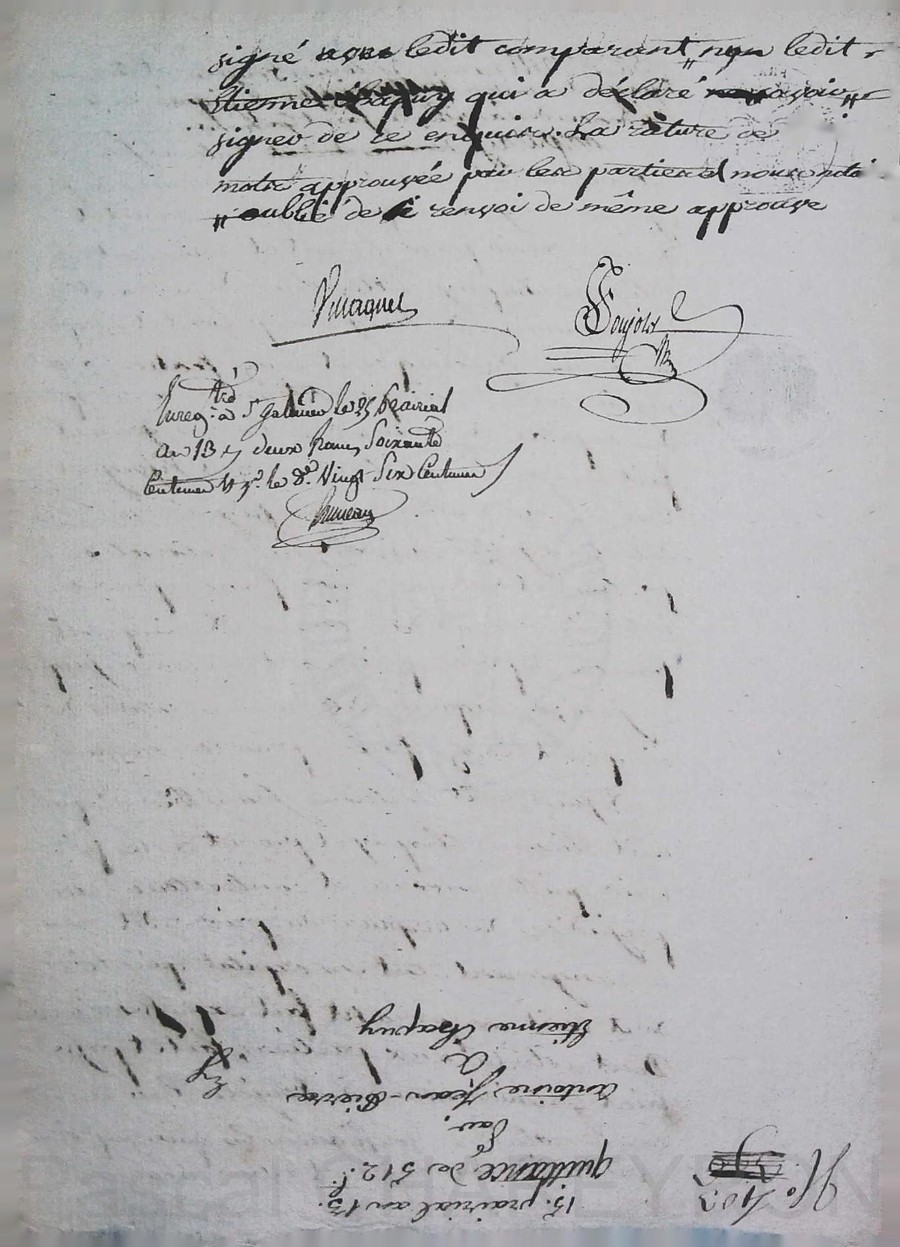 signé avec ledit comparant, non ledit
Etienne Chapuy qui a déclaré ne savoir
signer de ce enquis. La râture de
mots approuvée par les parties et nous
oublié de renvoi de même approuvé
Vmagnet
Toujols
Enregtré à St Galmier le 25 prairial
an 13 deux francs Soixante
Centimes Vingt Six Centimes
N.° 403
15. prairial an 13.
quittance de 512 f.
Par,
Antoine Jean-Pierre
A
Etienne Chapuy